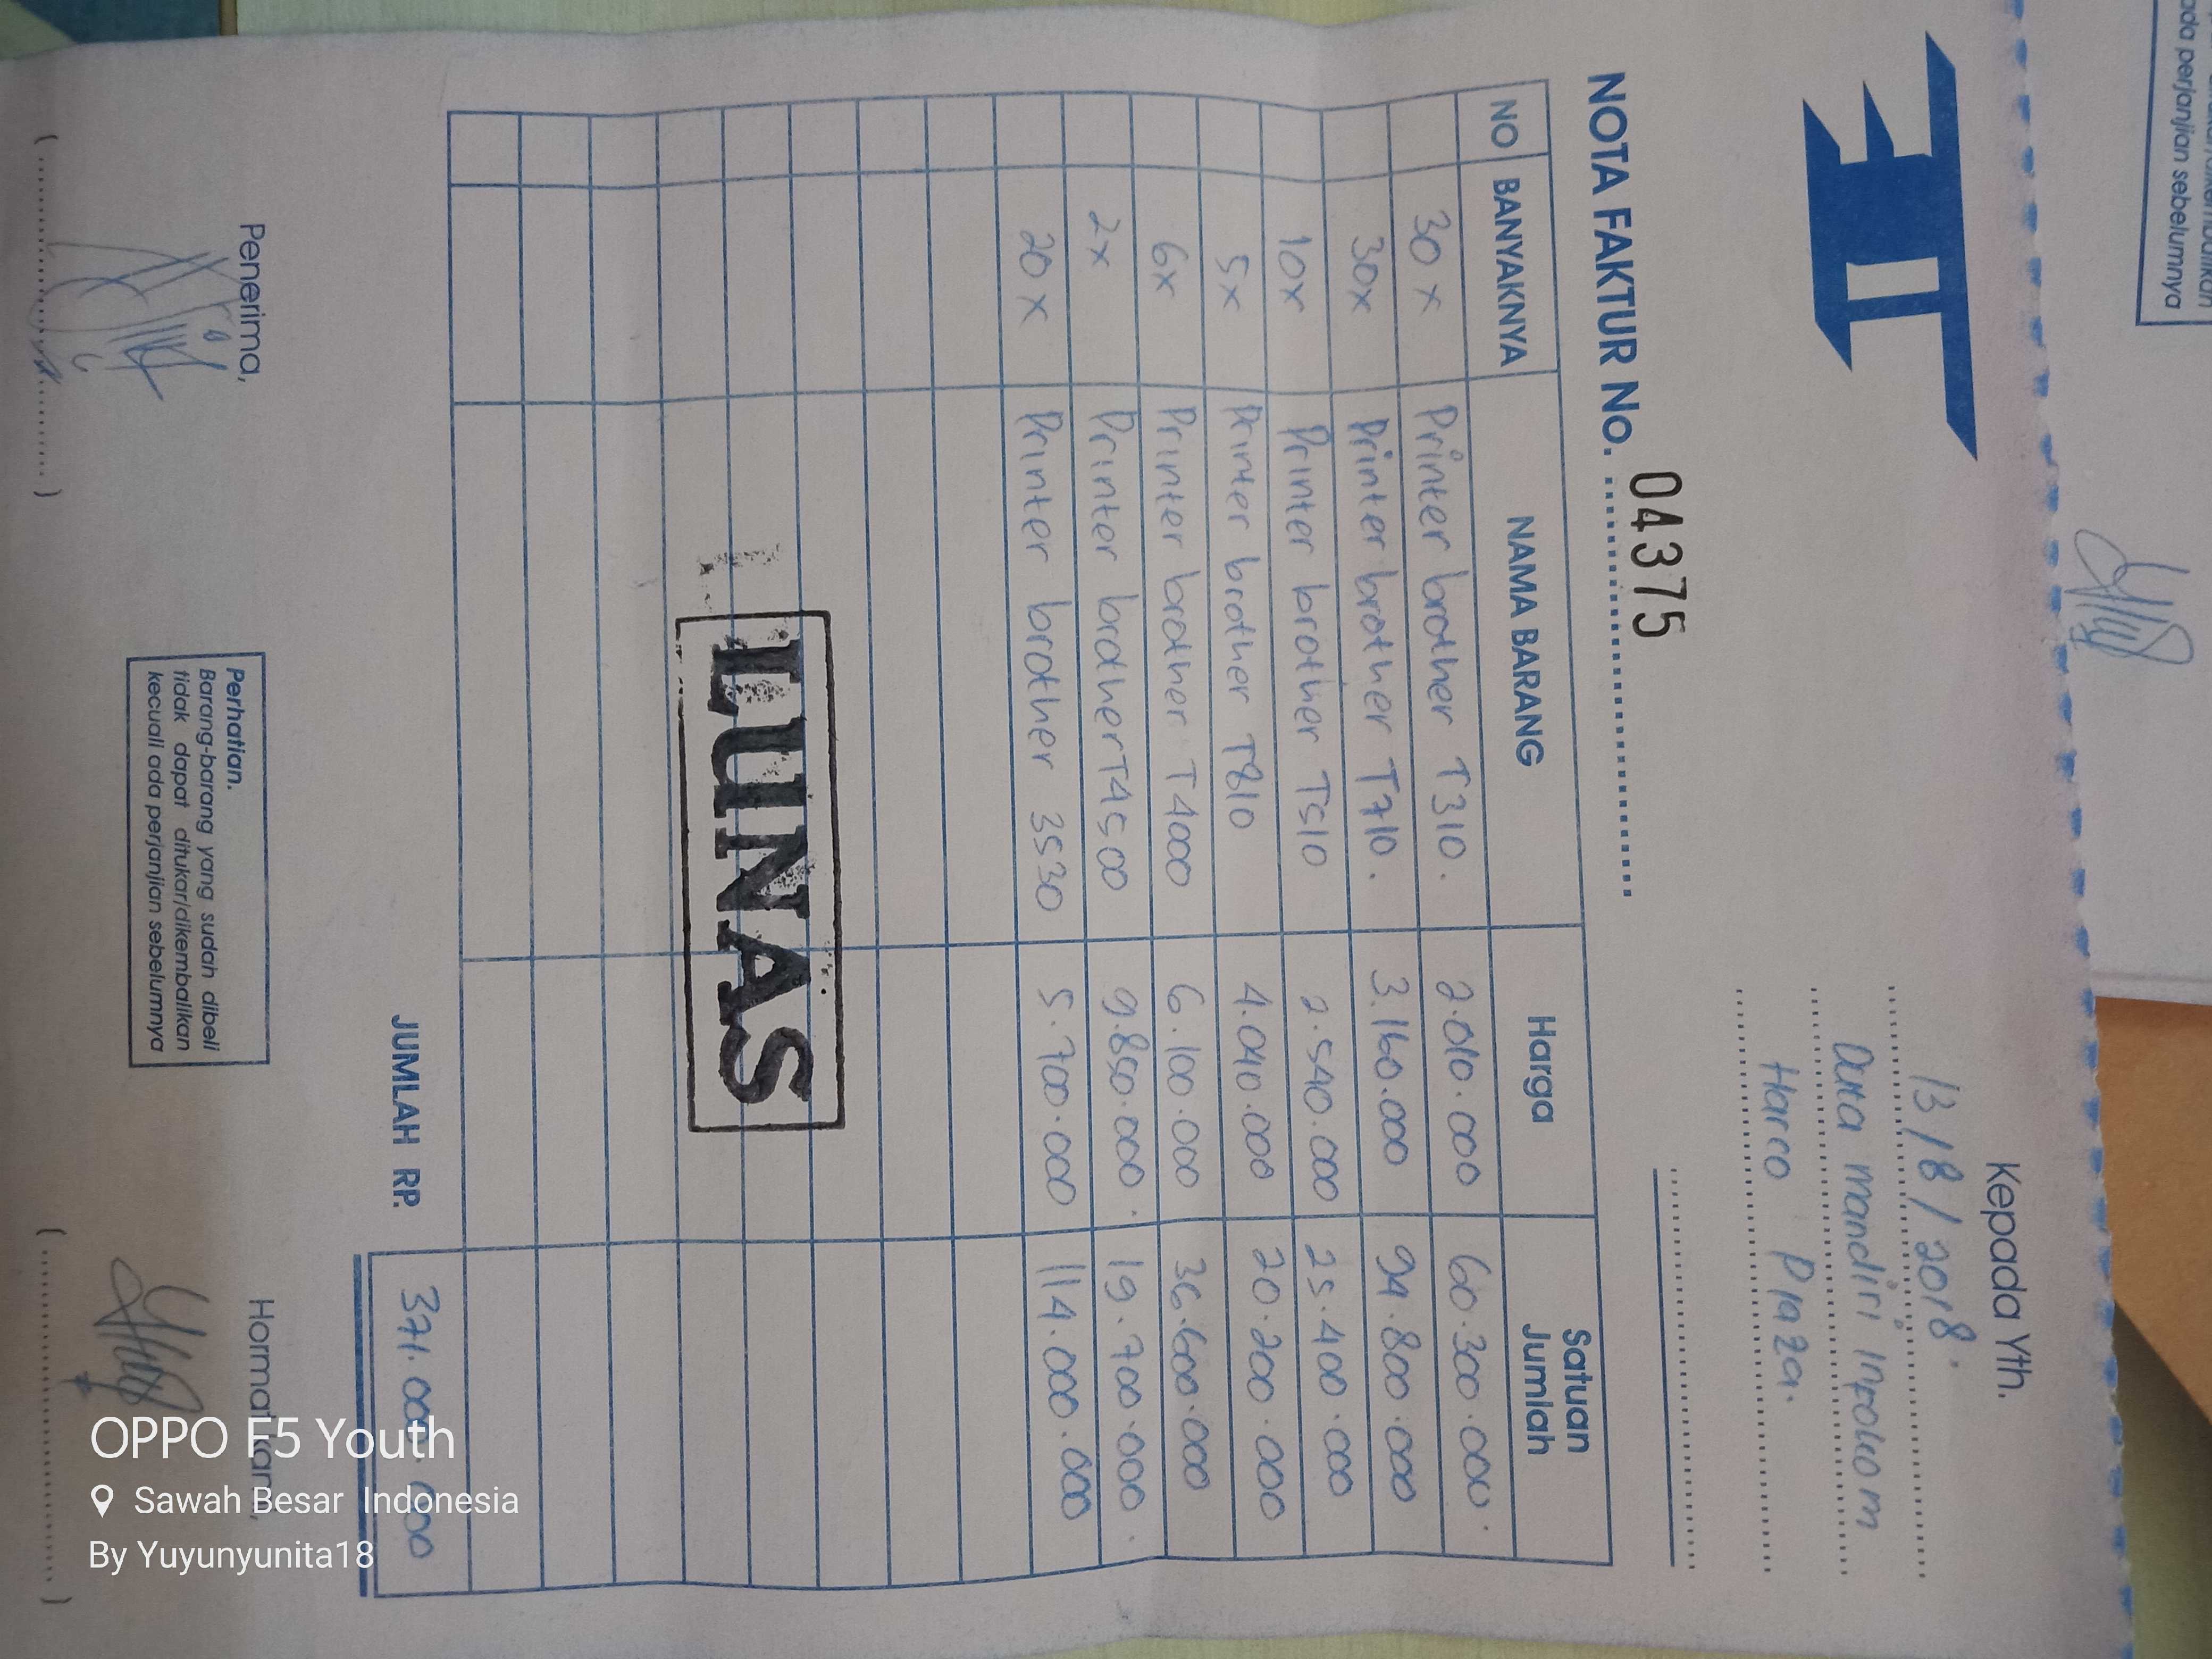 ada perjanjian sebelumnya
Kepada Yth.
13/8/2018.
Duta mandiri Inpokom
Harco Plaza.
NOTA FAKTUR No. 04375
NO BANYAKNYA NAMA BARANG Harga Satuan Jumlah
30 x Printer brother T310. 2.010.000 60.300.000.
30x Printer brother T710. 3.160.000 94.800.000
10x Printer brother T510 2.540.000 25.400.000
5x Printer brother T810 4.040.000 20.200.000
6x Printer brother T4000 6.100.000 36.600.000
2x Printer brother T4500 9.850.000. 19.700.000.
20 x Printer brother 3530 5.700.000 114.000.000
LUNAS
JUMLAH RP. 371.000.000
Penerima,
Perhatian.
Barang-barang yang sudah dibeli
tidak dapat ditukar/dikembalikan
kecuali ada perjanjian sebelumnya
Hormat kami,
OPPO F5 Youth
Sawah Besar Indonesia
By Yuyunyunita18